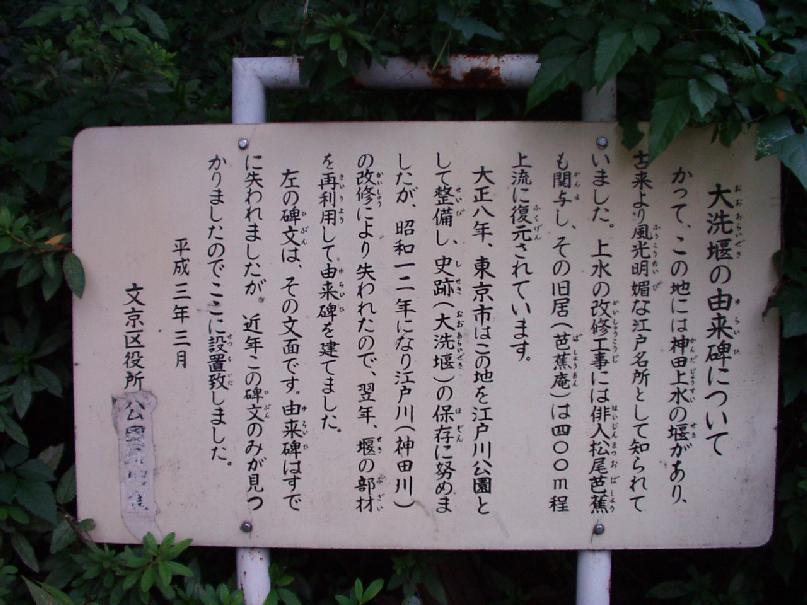 大洗堰の由来碑について
かって、この地には神田上水の堰があり、
古来より風光明媚な江戸名所として知られて
いました。上水の改修工事には俳人松尾芭蕉
も関与し、その旧居(芭蕉庵)は四〇〇m程
上流に復元されています。
大正八年、東京市はこの地を江戸川公園と
して整備し、史跡(大洗堰)の保存に努めま
したが、昭和一二年になり江戸川(神田川)
の改修により失われたので、翌年、堰の部材
を再利用して由来碑を建てました。
左の碑文は、その文面です。由来碑はすで
に失われましたが、近年この碑文のみが見つ
かりましたのでここに設置致しました。
平成三年三月
文京区役所